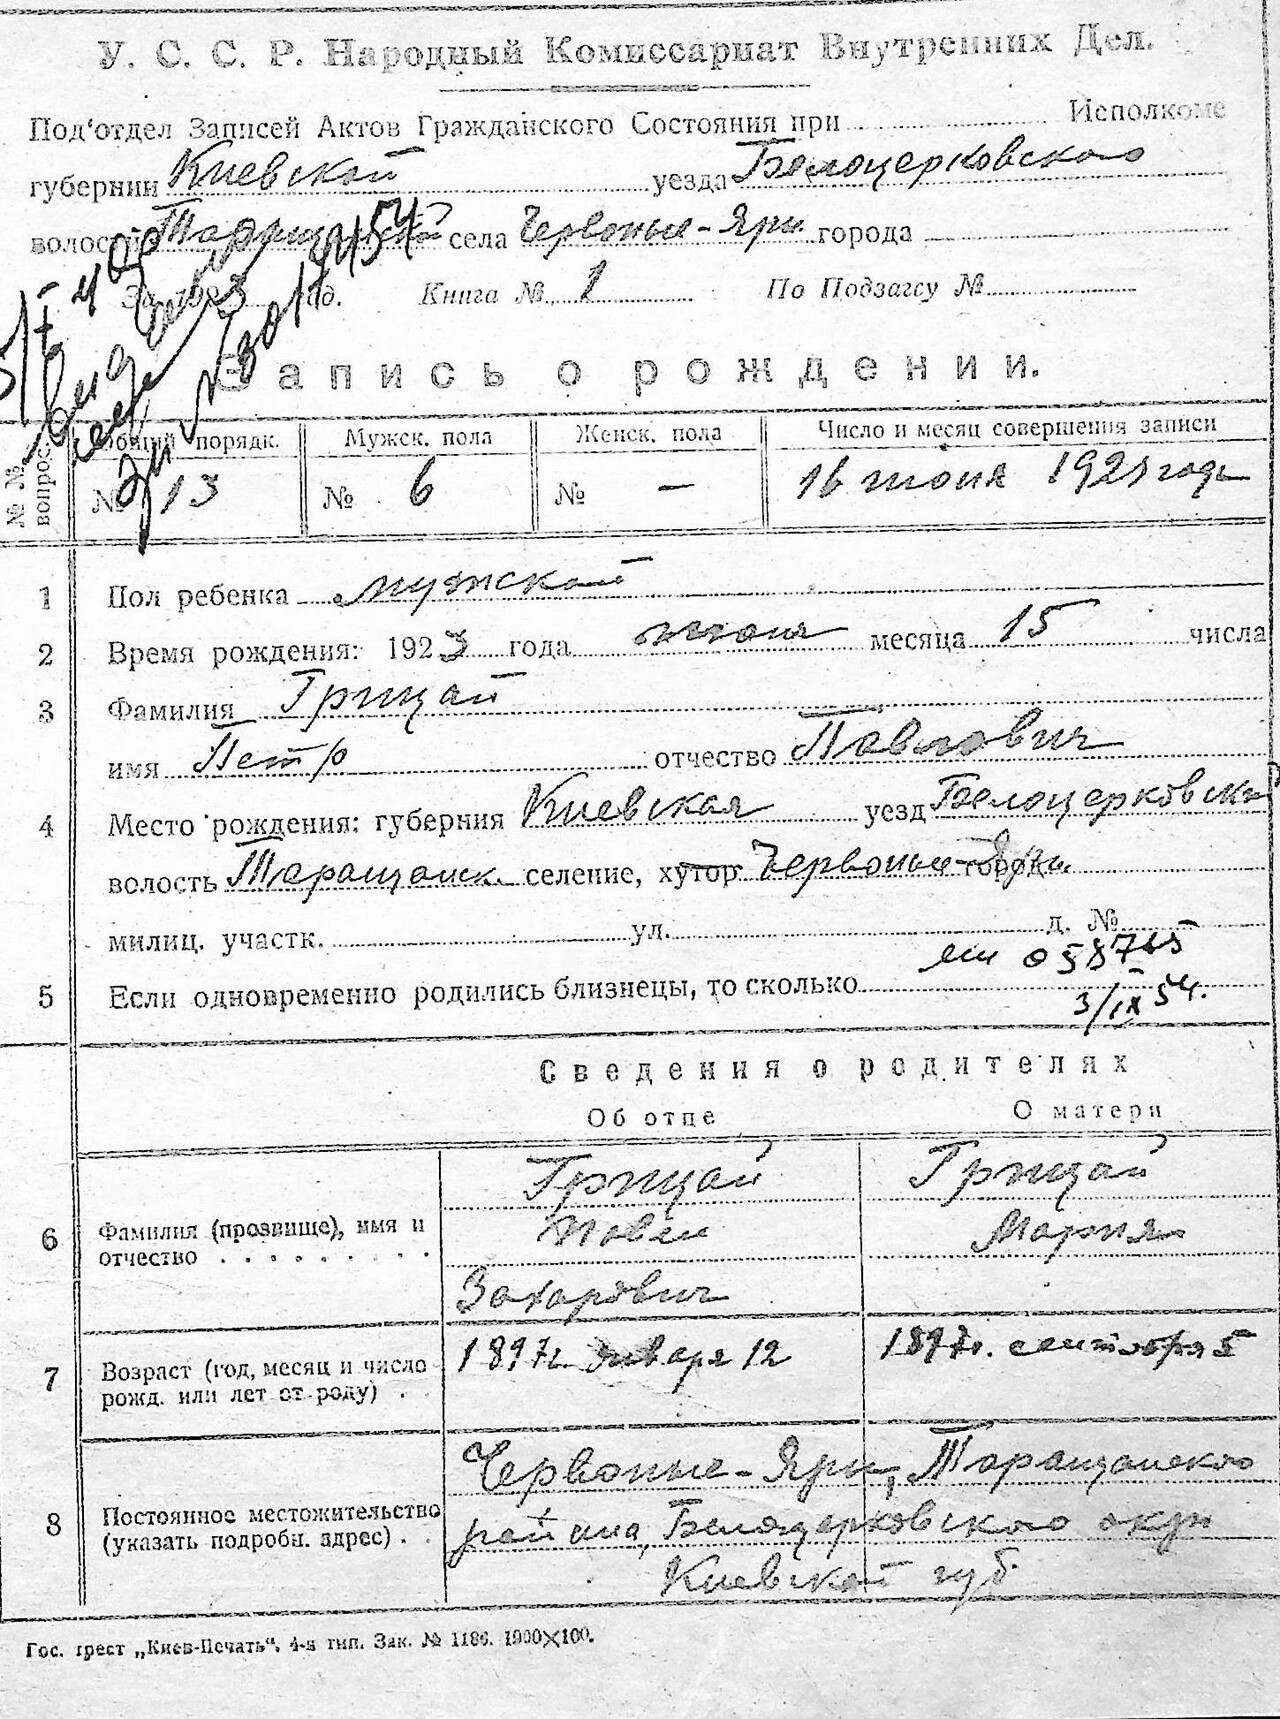 У. С. С. Р. Народный Комиссариат Внутренних Дел.
Под'отдел Записей Актов Гражданского Состояния при Исполкоме
губернии Киевской уезда Белоцерковского
волости села Червоные-Яры города
За 1923 год. Книга № 1 По Подзагсу №
Запись о рождении.
№ № вопрос.
Общий порядк. Мужск. пола Женск. пола Число и месяц совершения записи
№ 13 № 6 № — 16 июня 1923 года
1 Пол ребенка мужской
2 Время рождения: 1923 года июня месяца 15 числа
3 Фамилия Грицай
имя Петр отчество Павлович
4 Место рождения: губерния Киевская уезд Белоцерковский
волость Таращанск. селение, хутор Червоные-Яры города
милиц. участк. ул. д. №
5 Если одновременно родились близнецы, то сколько
3/IX 54.
Сведения о родителях
Об отце О матери
Грицай Грицай
6 Фамилия (прозвище), имя и отчество Павел Мария
Захарович
7 Возраст (год, месяц и число рожд. или лет от роду) 1897г. января 12 1897г. сентября 5
Червоные-Яры, Таращанского
8 Постоянное местожительство (указать подробн. адрес) района, Белоцерковского окру
Киевской губ.
Гос. трест „Киев-Печать“. 4-я тип. Зак. № 1186. 1900×100.